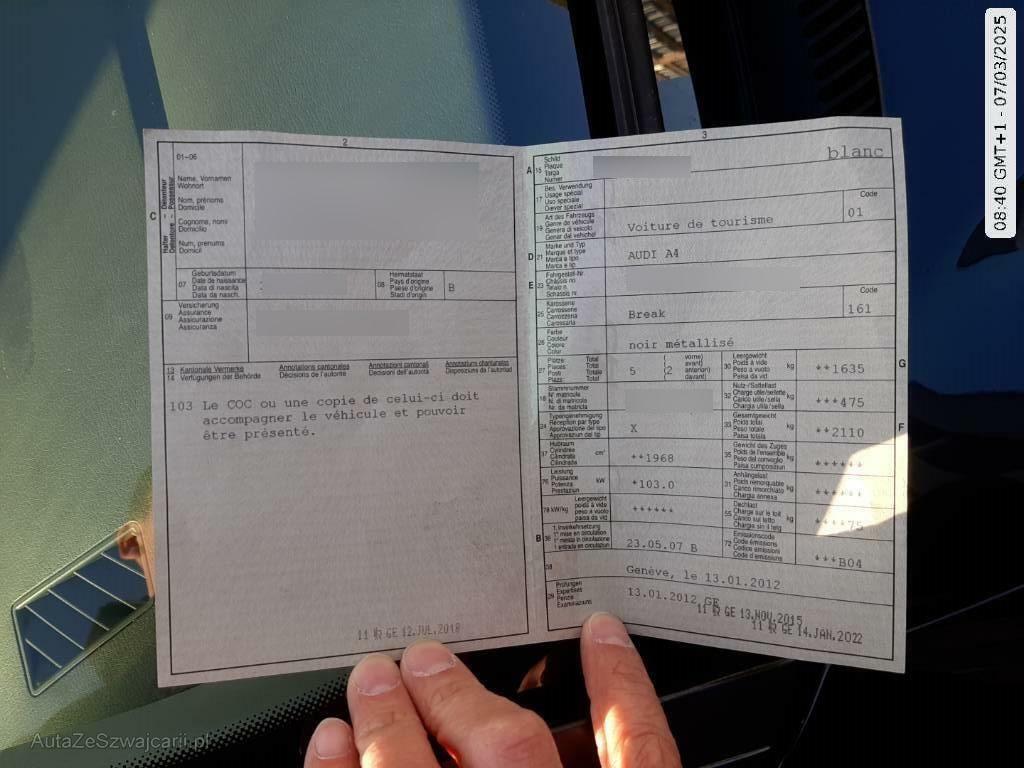 08:40 GMT+1 - 07/03/2025
2
01-06
C
Halter Détenteur
Detentore Possessur
Name, Vornamen
Wohnort
Nom, prénoms
Domicile
Cognome, nomi
Domicilio
Num, prenums
Domicil
07
Geburtsdatum
Date de naissance
Data di nascita
Data da nasch.
08
Heimatstaat
Pays d'origine
Paese d'origine
Stadi d'origin
B
09
Versicherung
Assurance
Assicurazione
Assicuranza
13 Kantonale Vermerke
14 Verfügungen der Behörde
Annotations cantonales
Décisions de l'autorité
Annotazioni cantonali
Decisioni dell'autorità
Annotaziuns chantunalas
Disposiziuns da l'autoritad
103 Le COC ou une copie de celui-ci doit
accompagner le véhicule et pouvoir
être présenté.
11 GE 12.JUL.2018
3
A
15
Schild
Plaque
Targa
Numer
blanc
17
Bes. Verwendung
Usage spécial
Uso speciale
Diever spezial
19
Art des Fahrzeugs
Genre de véhicule
Genere di veicolo
Gener dal vehichel
Voiture de tourisme
Code
01
D
21
Marke und Typ
Marque et type
Marca e tipo
Marca e tip
AUDI A4
E
23
Fahrgestell-Nr.
Châssis no
Telaio n.
Schassis nr.
25
Karosserie
Carrosserie
Carrozzeria
Carossaria
Break
Code
161
26
Farbe
Couleur
Colore
Colur
noir métallisé
27
Plätze: Total
Places: Total
Posti: Totale
Plazs: Total
5
( vorne)
(2 avant)
anteriori)
davant)
30
Leergewicht
Poids à vide
Peso a vuoto
Paisa da vid
kg
**1635
G
18
Stammnummer
N° matricule
N. di matricola
Nr. da matricla
32
Nutz-/Sattellast
Charge utile/sellette
Carico utile/sella
Chargia utila/sella
kg
***475
24
Typengenehmigung
Réception par type
Approvazione del tipo
Approvaziun dal tip
X
33
Gesamtgewicht
Poids total
Peso totale
Paisa totala
kg
**2110
F
37
Hubraum
Cylindrée
Cilindrata
Cilindrada
cm³
**1968
35
Gewicht des Zuges
Poids de l'ensemble
Peso del convoglio
Paisa cumposiziun
kg
******
76
Leistung
Puissance
Potenza
Prestaziun
kW
*103.0
31
Anhängelast
Poids remorquable
Carico rimorchiato
Chargia annexa
kg
******
78 kW/kg
Leergewicht
poids à vide
peso a vuoto
paisa da vid
******
55
Dachlast
Charge sur le toit
Carico sul tetto
Chargia sin il tetg
kg
****75
B
36
1. Inverkehrsetzung
1re mise en circulation
1a messa in circolazione
1 entrada en circulaziun
23.05.07 B
72
Emissionscode
Code émissions
Codice emissioni
Code d'emissiuns
***B04
38
Genève, le 13.01.2012
39
Prüfungen
Expertises
Perizie
Examinaziuns
13.01.2012 GE
11 GE 13.NOV.2015
11 GE 14.JAN.2022
AutaZeSzwajcarii.pl